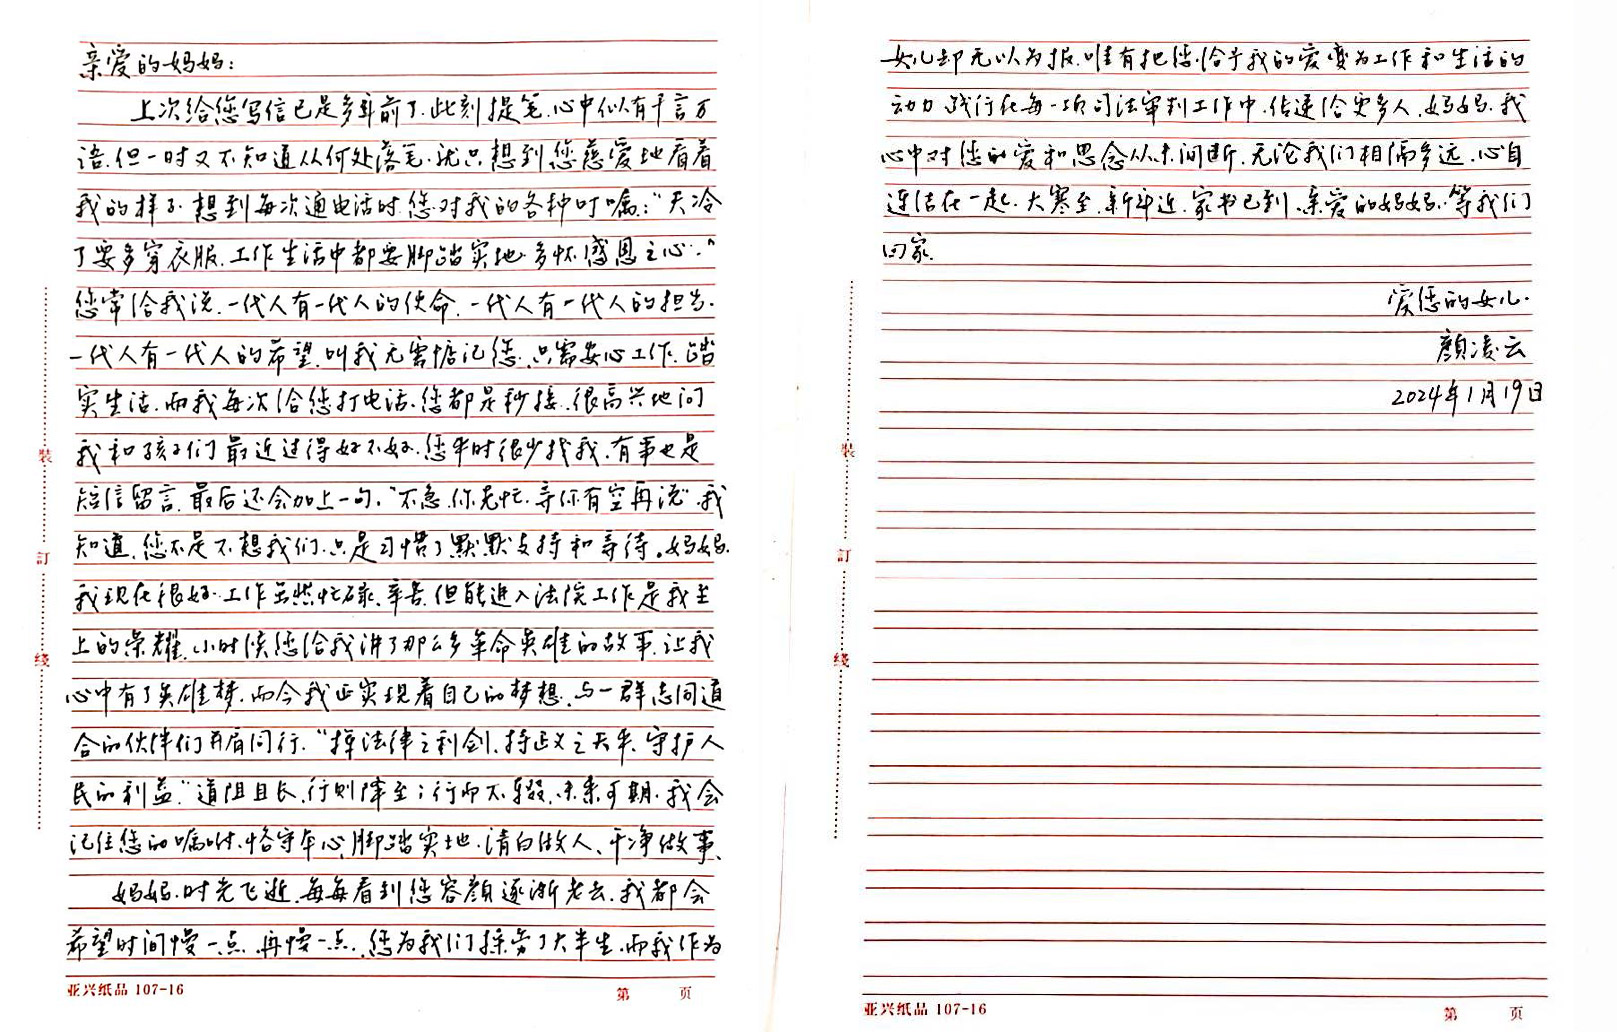 亲爱的妈妈：
上次给您写信已是多年前了.此刻提笔.心中似有千言万
语.但一时又不知道从何处落笔.就只想到您慈爱地看着
我的样子.想到每次通电话时.您对我的各种叮嘱：“天冷
了要多穿衣服.工作生活中都要脚踏实地.多怀感恩之心.”
您常给我说.一代人有一代人的使命.一代人有一代人的担当.
一代人有一代人的希望.叫我无需惦记您.只需安心工作.踏
实生活.而我每次给您打电话.您都是秒接.很高兴地问
我和孩子们最近过得好不好.您平时很少找我.有事也是
短信留言.最后还会加上一句.“不急.你先忙.等你有空再说”.我
知道.您不是不想我们.只是习惯了默默支持和等待。妈妈.
我现在很好.工作虽然忙碌、辛苦.但能进入法院工作是我至
上的荣耀.小时候您给我讲了那么多革命英雄的故事.让我
心中有了英雄梦.而今我正实现着自己的梦想.与一群志同道
合的伙伴们并肩同行.“捍法律之利剑、持正义之天平、守护人
民的利益.”道阻且长.行则降至；行而不辍.未来可期.我会
记住您的嘱咐.恪守本心、脚踏实地.清白做人、干净做事、
妈妈.时光飞逝.每每看到您容颜逐渐老去.我都会
希望时间慢一点.再慢一点.您为我们操劳了大半生.而我作为
亚兴纸品 107-16
第 页
装
訂
线
女儿却无以为报.唯有把您给予我的爱变为工作和生活的
动力.践行在每一项司法审判工作中.传递给更多人.妈妈.我
心中对您的爱和思念从未间断.无论我们相隔多远.心自
连结在一起.大寒至.新年近.家书已到.亲爱的妈妈.等我们
回家.
爱您的女儿.
颜凌云
2024年1月19日
亚兴纸品 107-16
第 页
装
訂
线